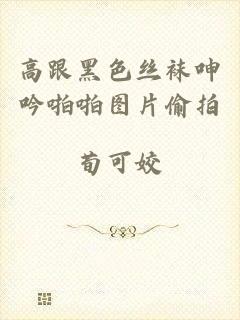 高跟黑色丝袜呻
吟啪啪图片偷拍
荀可姣